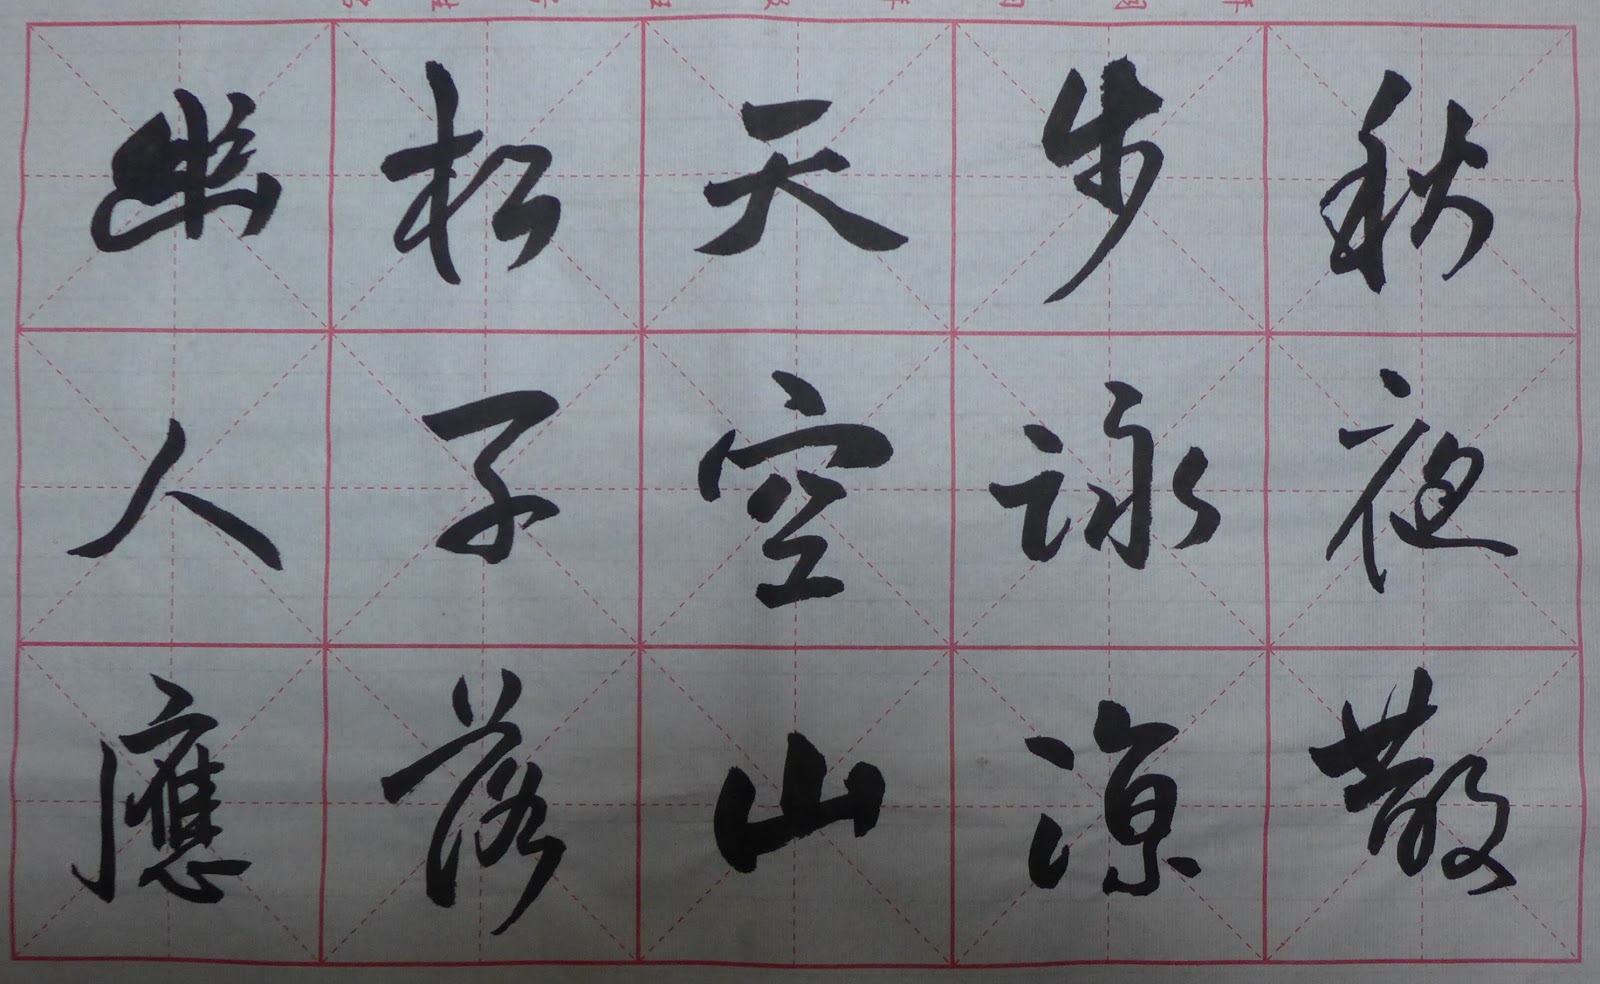 秋夜散
步詠涼
天空山
松子落
幽人應